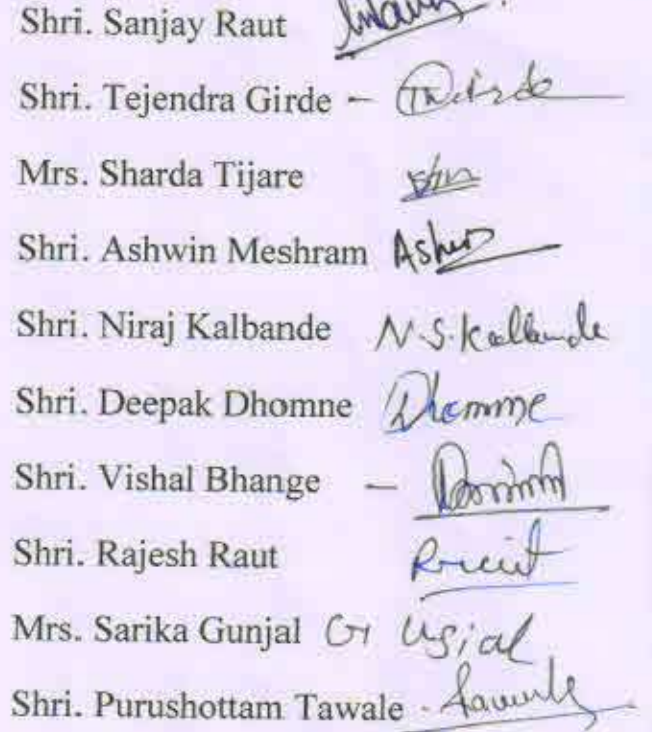 Shri. Sanjay Raut
Shri. Tejendra Girde -
Mrs. Sharda Tijare
Shri. Ashwin Meshram Ashwin
Shri. Niraj Kalbande N.S. Kalbande
Shri. Deepak Dhomne Dhomne
Shri. Vishal Bhange -
Shri. Rajesh Raut
Mrs. Sarika Gunjal
Shri. Purushottam Tawale -